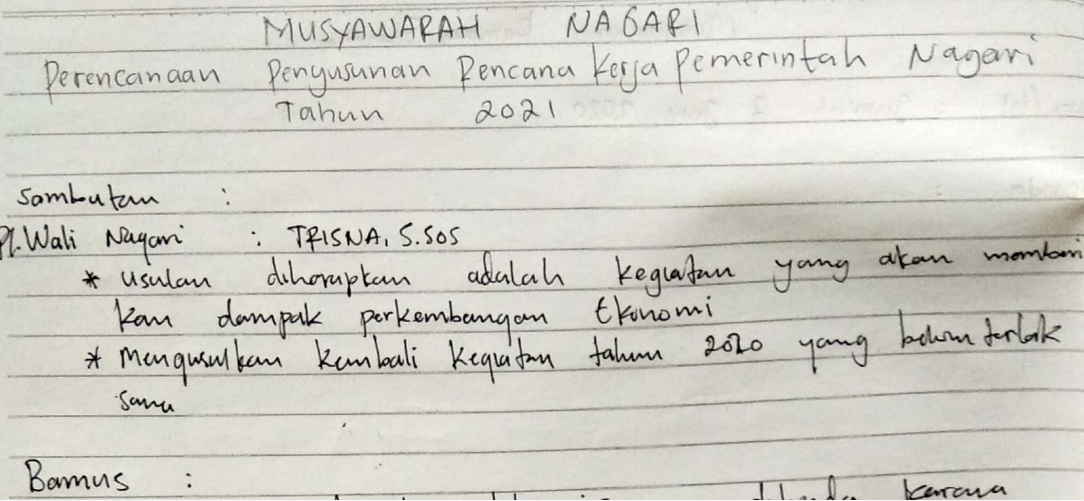 MUSYAWARAH NAGARI
Perencanaan Penyusunan Rencana Kerja Pemerintah Nagari
Tahun 2021
Sambutan :
Pl. Wali Nagari : TRISNA, S.SOS
* Usulan diharapkan adalah kegiatan yang akan memberi
kan dampak perkembangan Ekonomi
* Mengusulkan kembali kegiatan tahun 2020 yang belum terlak
sana
Bamus :
karena